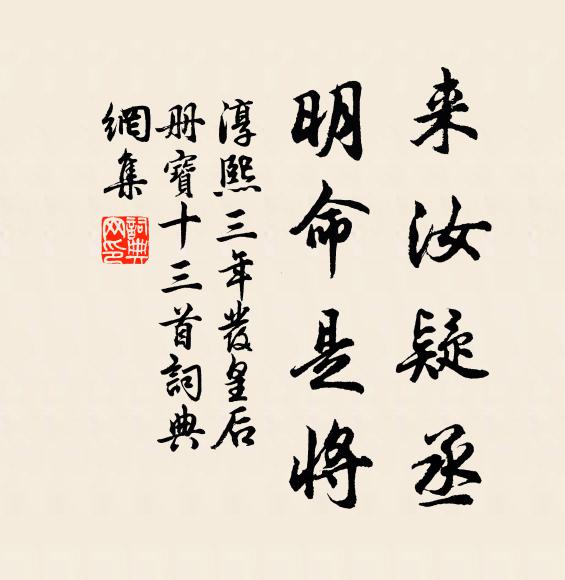 来汝疑丞
明命是将
淳熙三年發皇后
册寶十三首詞典
網集
詞典
网印